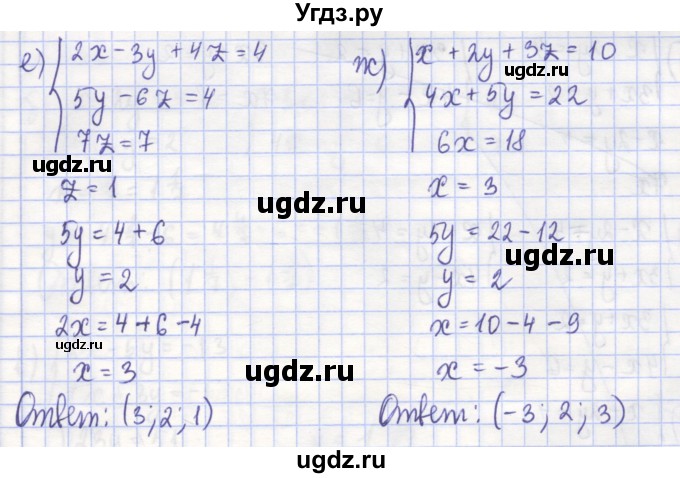 Угдз.ру
е) { 2x - 3y + 4z = 4
5y - 6z = 4
7z = 7
z = 1
5y = 4 + 6
y = 2
2x = 4 + 6 - 4
x = 3
Ответ: (3; 2; 1)
ж) { x + 2y + 3z = 10
4x + 5y = 22
6x = 18
x = 3
5y = 22 - 12
y = 2
x = 10 - 4 - 9
x = -3
Ответ: (-3; 2; 3)
ugdz.ru
ugdz.ru
ugdz.ru
ugdz.ru
ugdz.ru
ugdz.ru
ugdz.ru
ugdz.ru
ugdz.ru